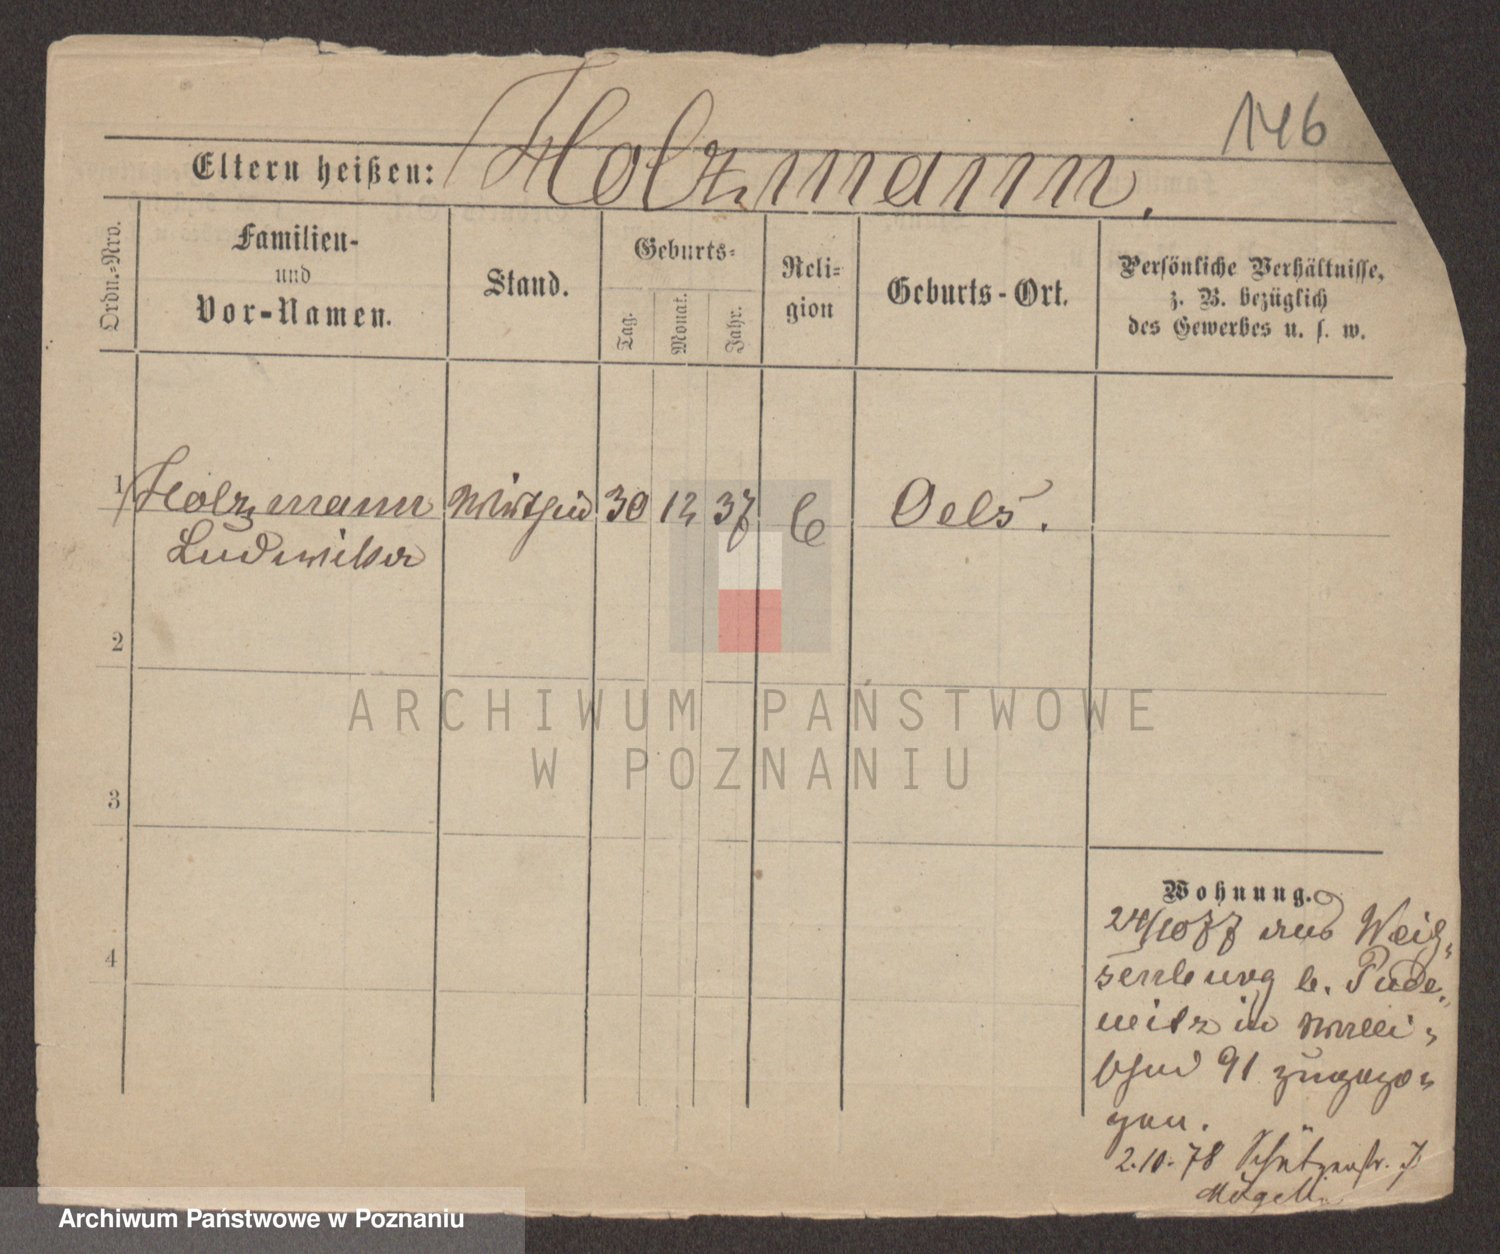 146
Eltern heißen: Holzmann.
Ordn.-Nro.
Familien-
und
Vor-Namen.
Stand.
Geburts-
Tag.
Monat.
Jahr.
Reli-
gion
Geburts-Ort.
Persönliche Verhältnisse,
z. B. bezüglich
des Gewerbes u. s. w.
1 Holzmann Wirthsch 30 12 37 C Oels.
Ludwika
2
3
4
ARCHIWUM PAŃSTWOWE
W POZNANIU
Wohnung.
24/10 77 aus Weis-
senburg b. Pude-
witz in
91 zugezo-
gen.
2.10.78 Schützenstr. 7
Archiwum Państwowe w Poznaniu